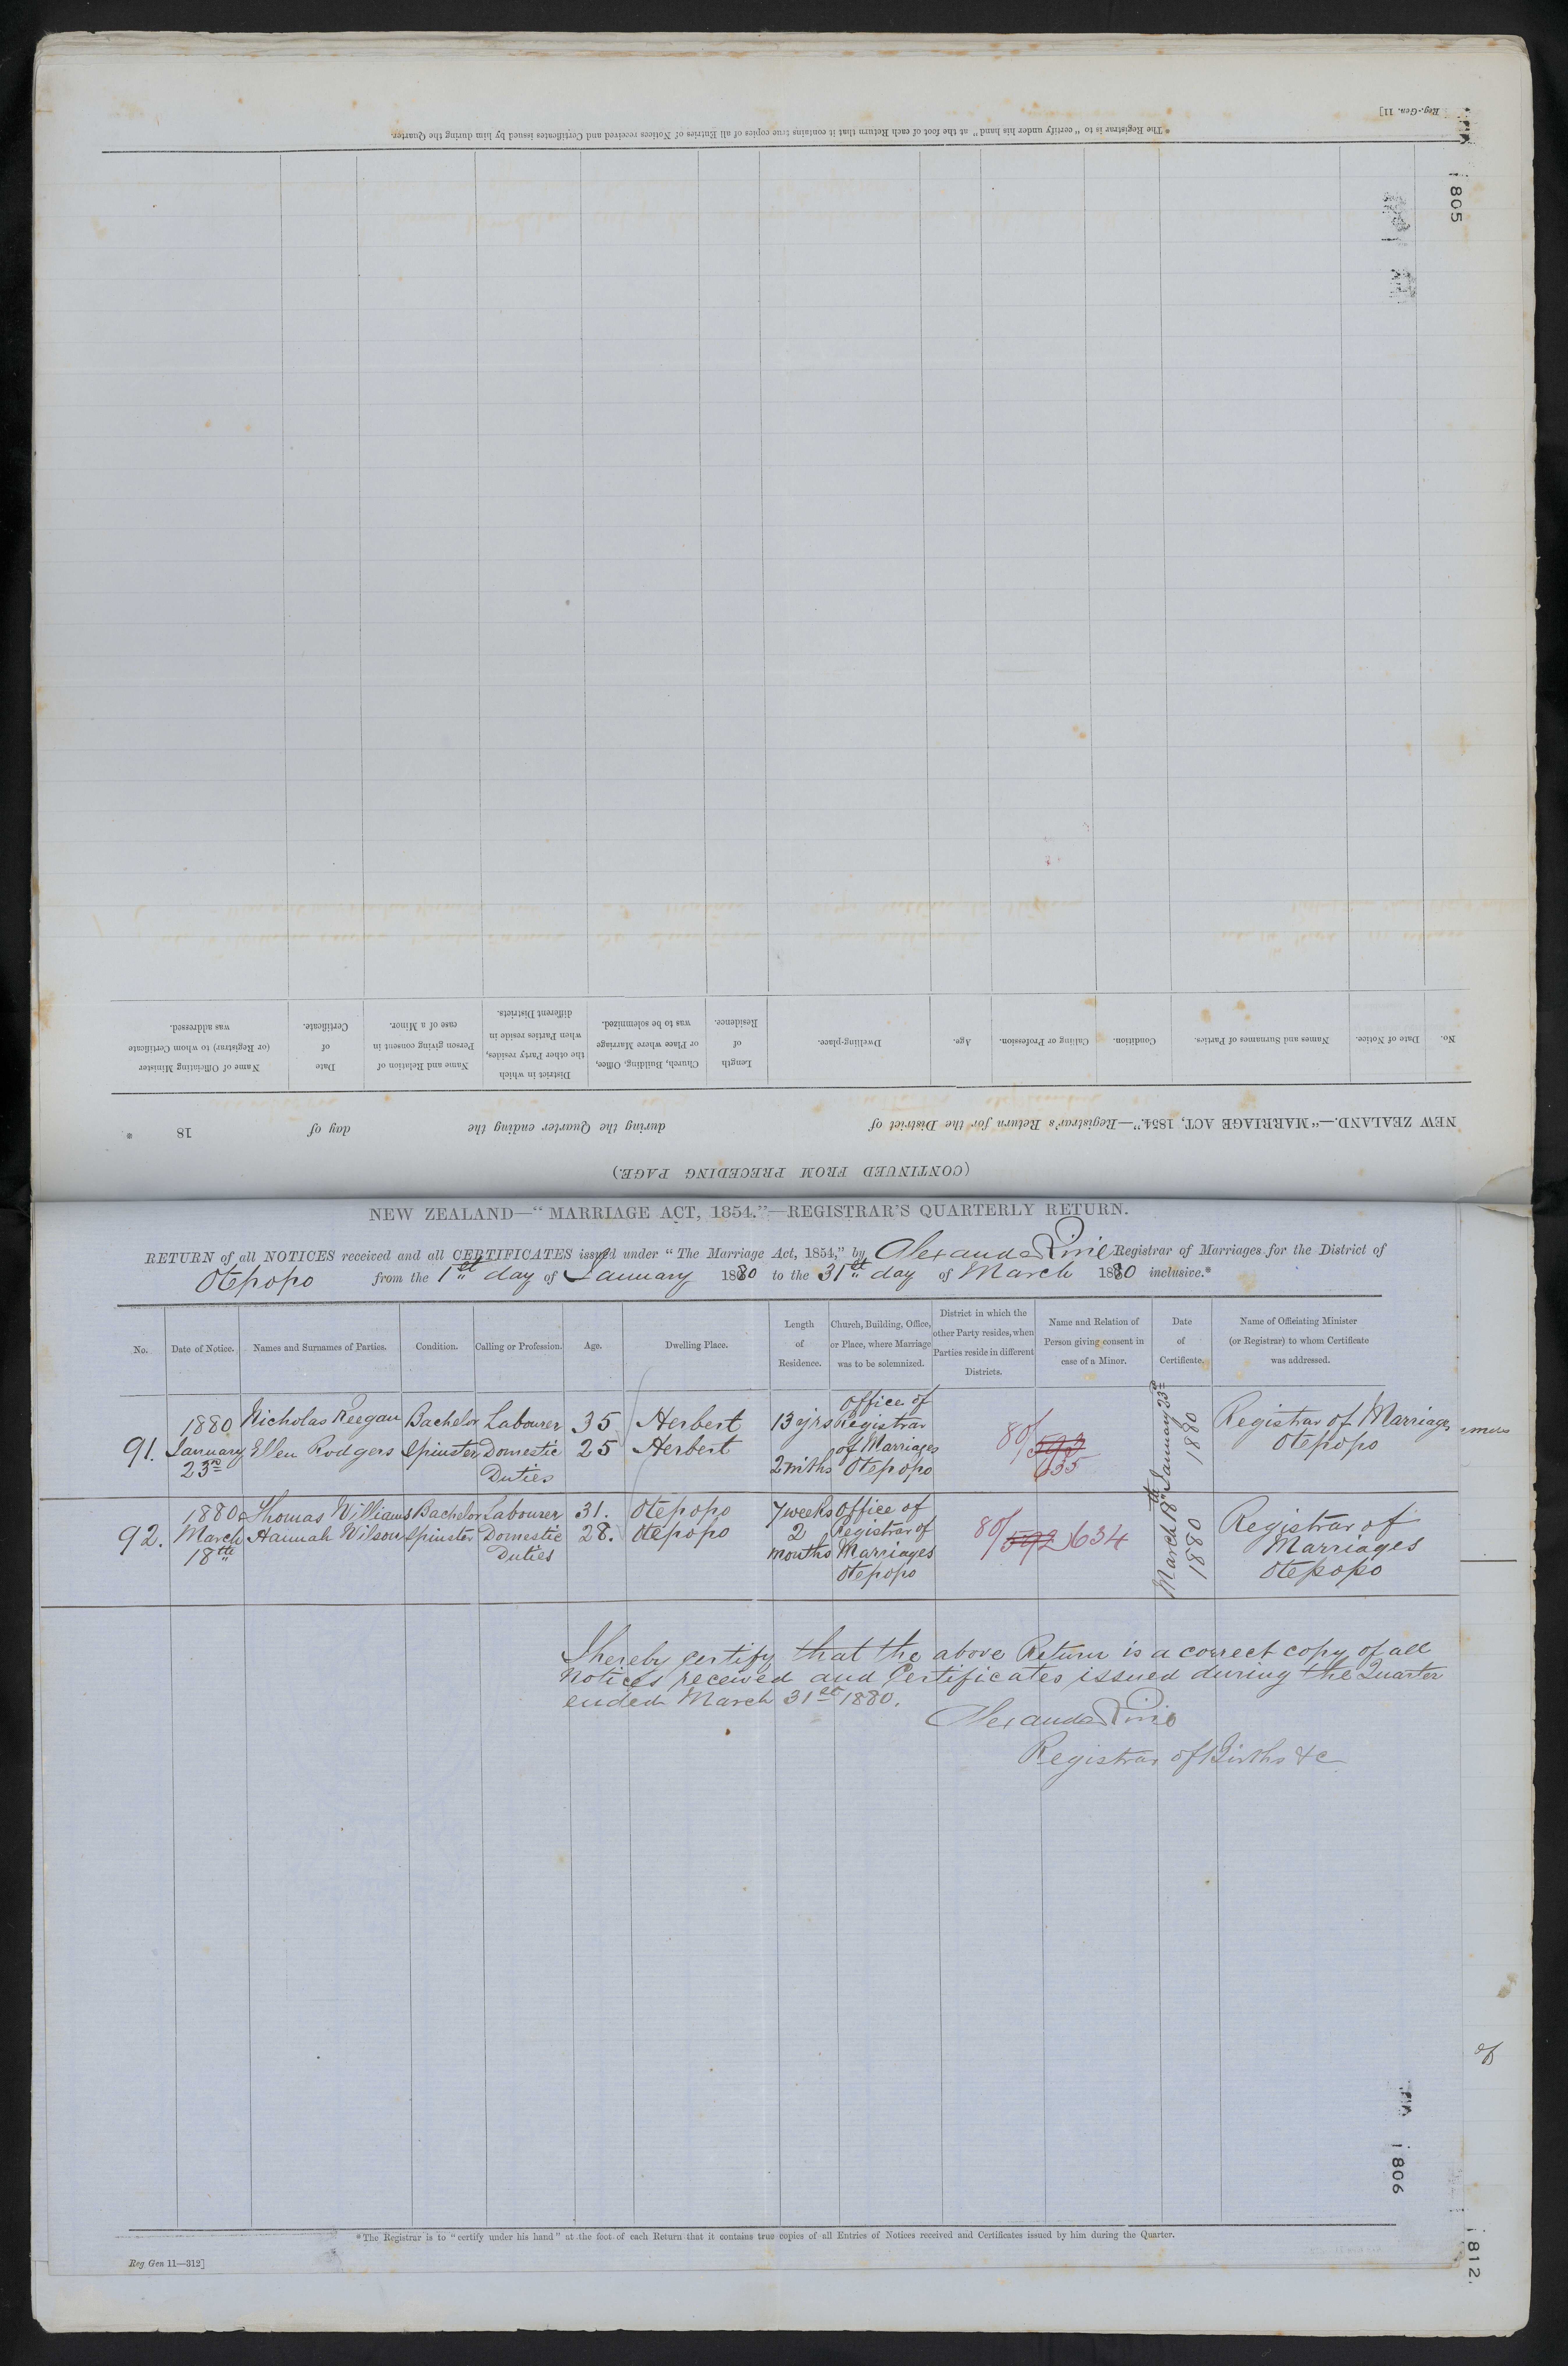 Reg.-Gen. 11]
* The Registrar is to "certify under his hand" at the foot of each Return that it contains true copies of all Entries of Notices received and Certificates issued by him during the Quarter.
1805
No.
Date of Notice.
Names and Surnames of Parties.
Condition.
Calling or Profession.
Age.
Dwelling-place.
Length of Residence.
Church, Building, Office, or Place where Marriage was to be solemnized.
District in which the other Party resides, when Parties reside in different Districts.
Name and Relation of Person giving consent in case of a Minor.
Date of Certificate.
Name of Officiating Minister (or Registrar) to whom Certificate was addressed.
NEW ZEALAND.—"MARRIAGE ACT, 1854."—Registrar's Return for the District of during the Quarter ending the day of 18 *
(CONTINUED FROM PRECEDING PAGE.)
NEW ZEALAND—"MARRIAGE ACT, 1854."—REGISTRAR'S QUARTERLY RETURN.
RETURN of all NOTICES received and all CERTIFICATES issued under "The Marriage Act, 1854," by Alexander Pirie Registrar of Marriages for the District of
Otepopo from the 1st day of January 1880 to the 31st day of March 1880 inclusive.*
No.
Date of Notice.
Names and Surnames of Parties.
Condition.
Calling or Profession.
Age.
Dwelling Place.
Length
of
Residence.
Church, Building, Office,
or Place, where Marriage
was to be solemnized.
District in which the
other Party resides, when
Parties reside in different
Districts.
Name and Relation of
Person giving consent in
case of a Minor.
Date
of
Certificate.
Name of Officiating Minister
(or Registrar) to whom Certificate
was addressed.
91.
1880
January
23rd
Nicholas Keegan
Ellen Rodgers
Bachelor
Spinster
Labourer
Domestic
Duties
35
25
Herbert
Herbert
13 yrs
2 mths
Office of
Registrar
of Marriages
Otepopo
80/593
635
January 23rd
1880
Registrar of Marriages
Otepopo
92.
1880
March
18th
Thomas Williams
Hannah Wilson
Bachelor
Spinster
Labourer
Domestic
Duties
31.
28.
Otepopo
Otepopo
7 weeks
2
months
Office of
Registrar of
Marriages
Otepopo
80/592 634
March 18th
1880
Registrar of
Marriages
Otepopo
I hereby certify that the above Return is a correct copy of all
Notices received and Certificates issued during the Quarter
ended March 31st 1880.
Alexander Pirie
Registrar of Births &c
of
1806
* The Registrar is to "certify under his hand" at the foot of each Return that it contains true copies of all Entries of Notices received and Certificates issued by him during the Quarter.
Reg Gen 11—312]
1812.